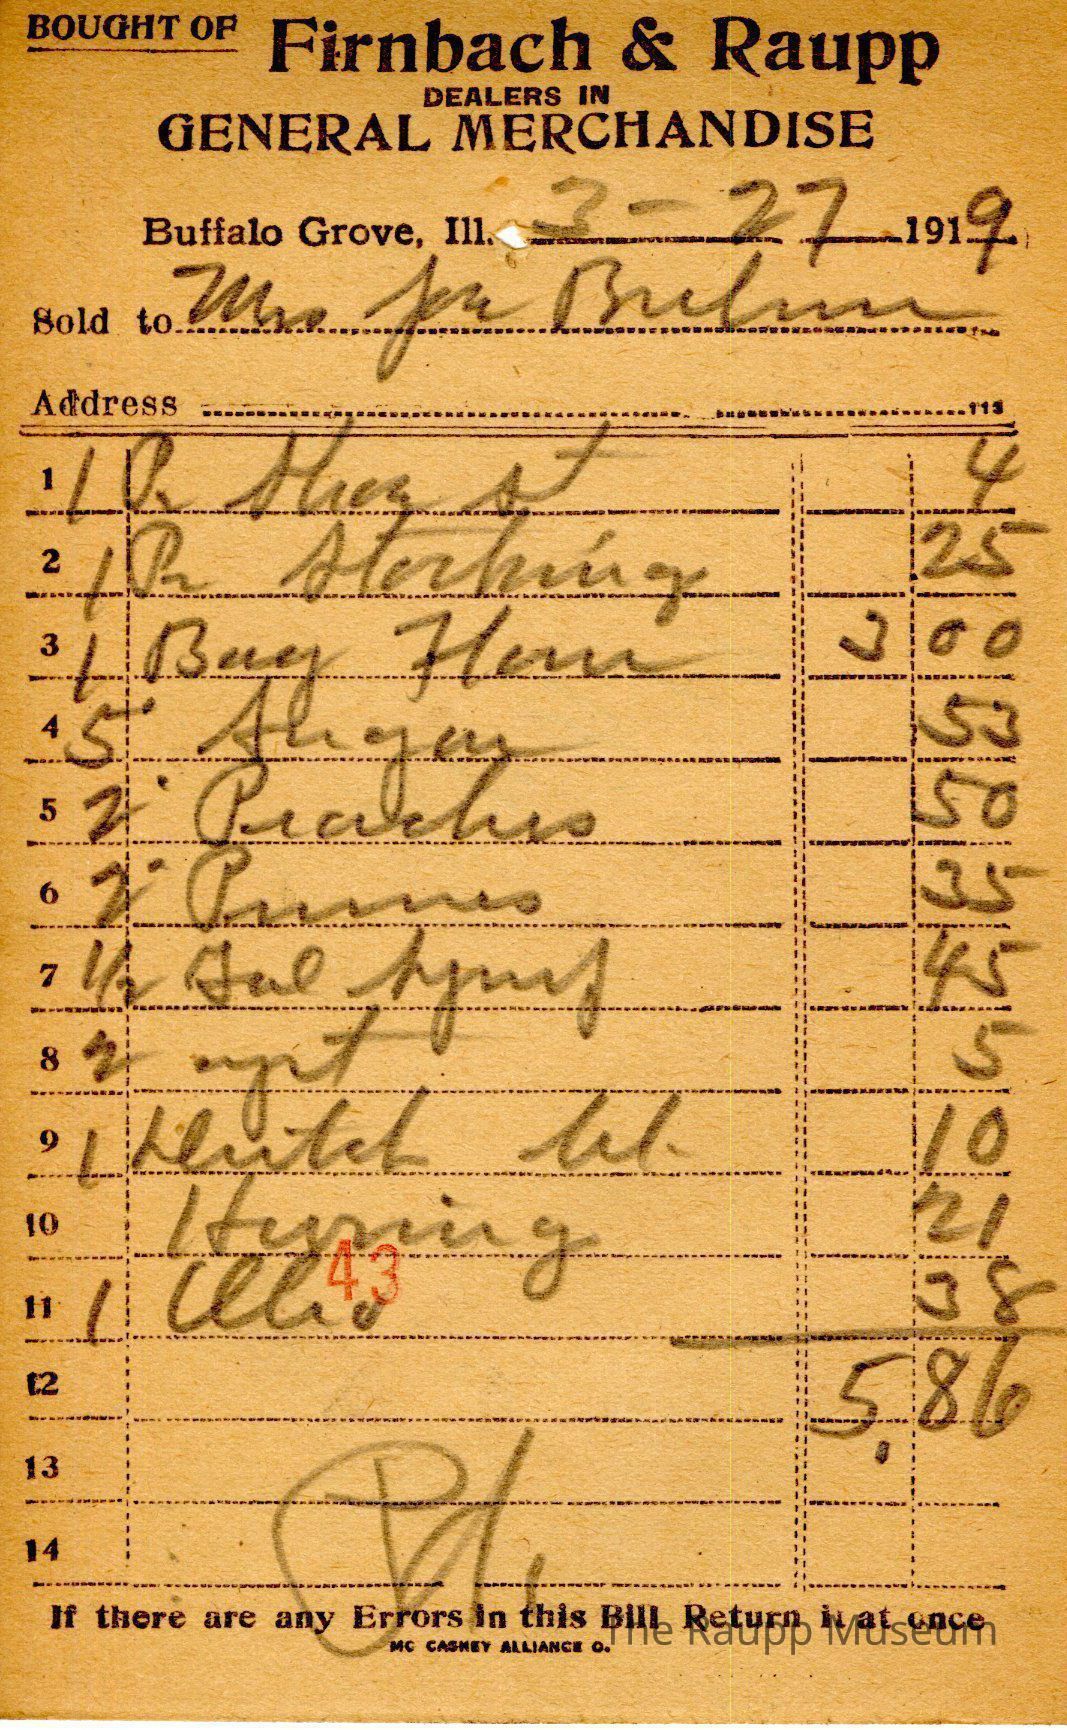 BOUGHT OF Firnbach & Raupp
DEALERS IN
GENERAL MERCHANDISE
Buffalo Grove, Ill. 3-27 1919
Sold to Mrs Joe
Address 113
1 1 Pr Shoe st 4
2 1 Pr Stocking 25
3 1 Bag Flour 3 00
4 5 Sugar 53
5 2 Peaches 50
6 2 Prunes 35
7 1/2 Gal Syrup 45
8 2 yst 5
9 1 Dutch cl. 10
10 Herring 21
11 1 Oleo 38
43
12 5.86
13
14
Pd
If there are any Errors in this Bill Return it at once
MC CASKEY ALLIANCE O.
The Raupp Museum